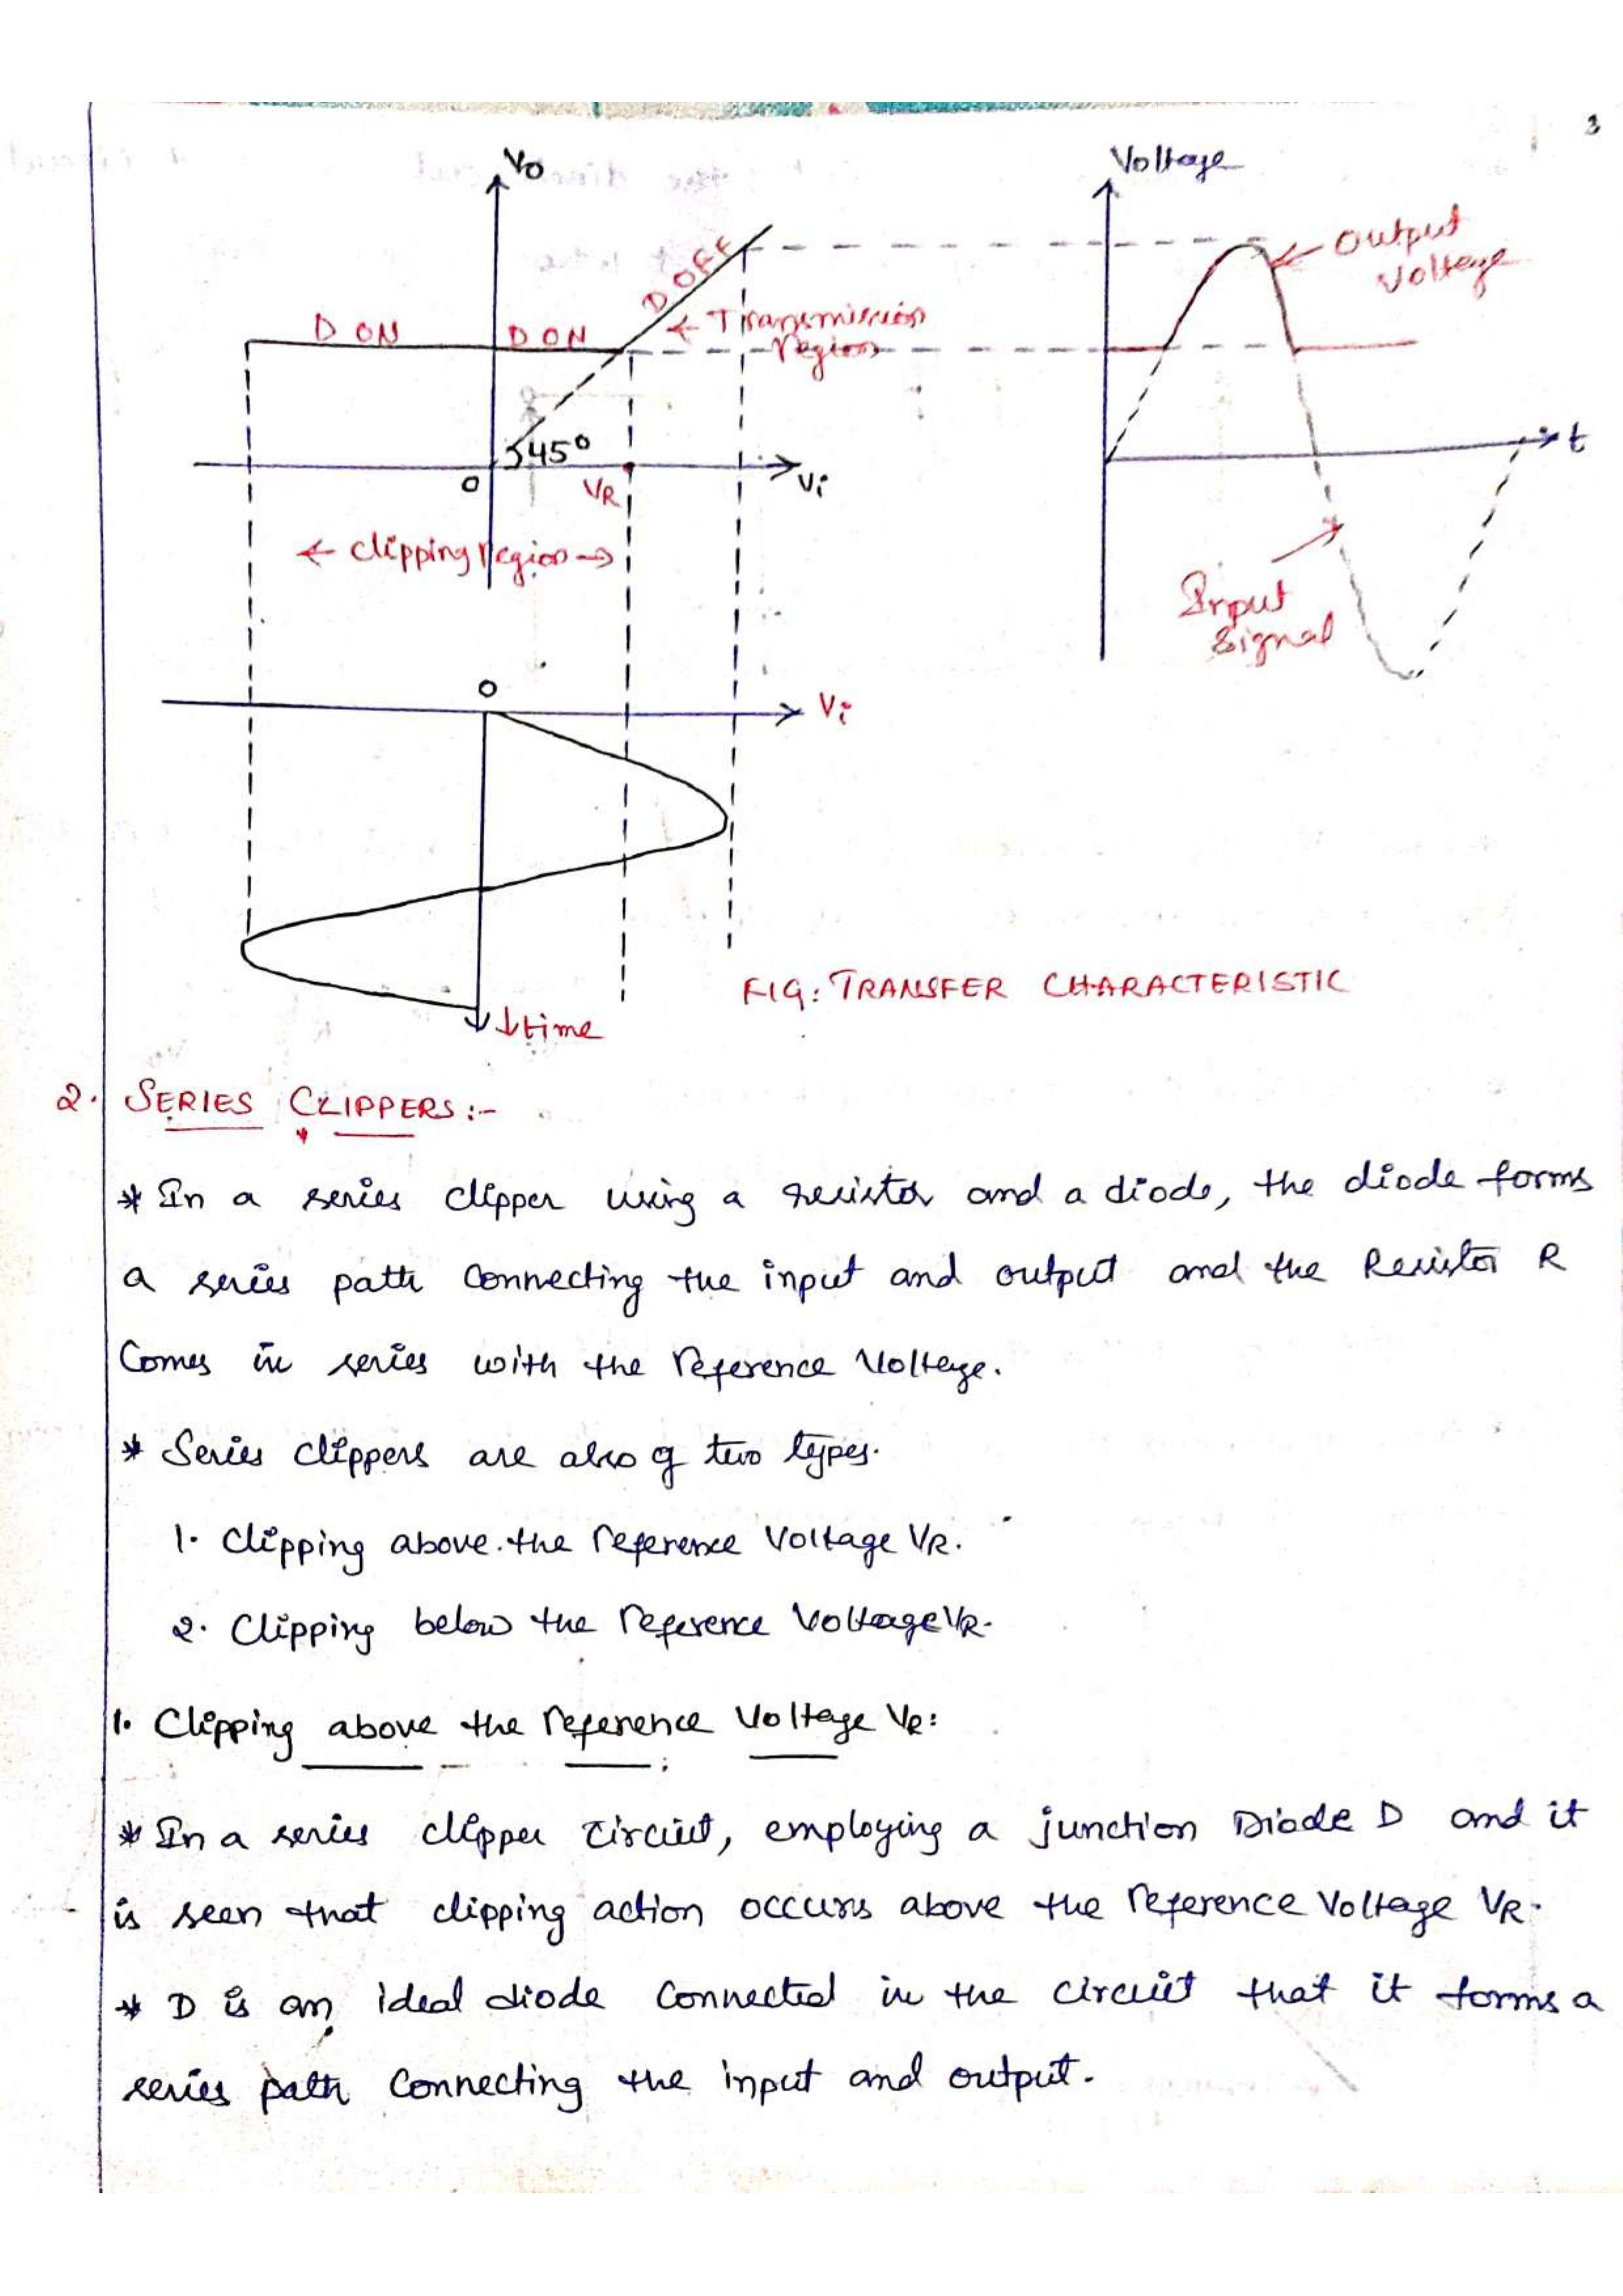 3
Vo
Voltage
Output
Voltage
D OFF
← Transmission
region
D ON
D ON
45°
O
VR
Vi
t
← Clipping region →
Input
Signal
O
Vi
↓ time
FIG: TRANSFER CHARACTERISTIC
2. SERIES CLIPPERS:-
* In a series clipper using a resistor and a diode, the diode forms
a series path connecting the input and output and the Resistor R
Comes in series with the reference Voltage.
* Series clippers are also of two types.
1. Clipping above the reference Voltage VR.
2. Clipping below the reference Voltage VR.
1. Clipping above the reference Voltage VR:
* In a series clipper circuit, employing a junction Diode D and it
is seen that clipping action occurs above the reference Voltage VR.
* D is an ideal diode connected in the circuit that it forms a
series path connecting the input and output.